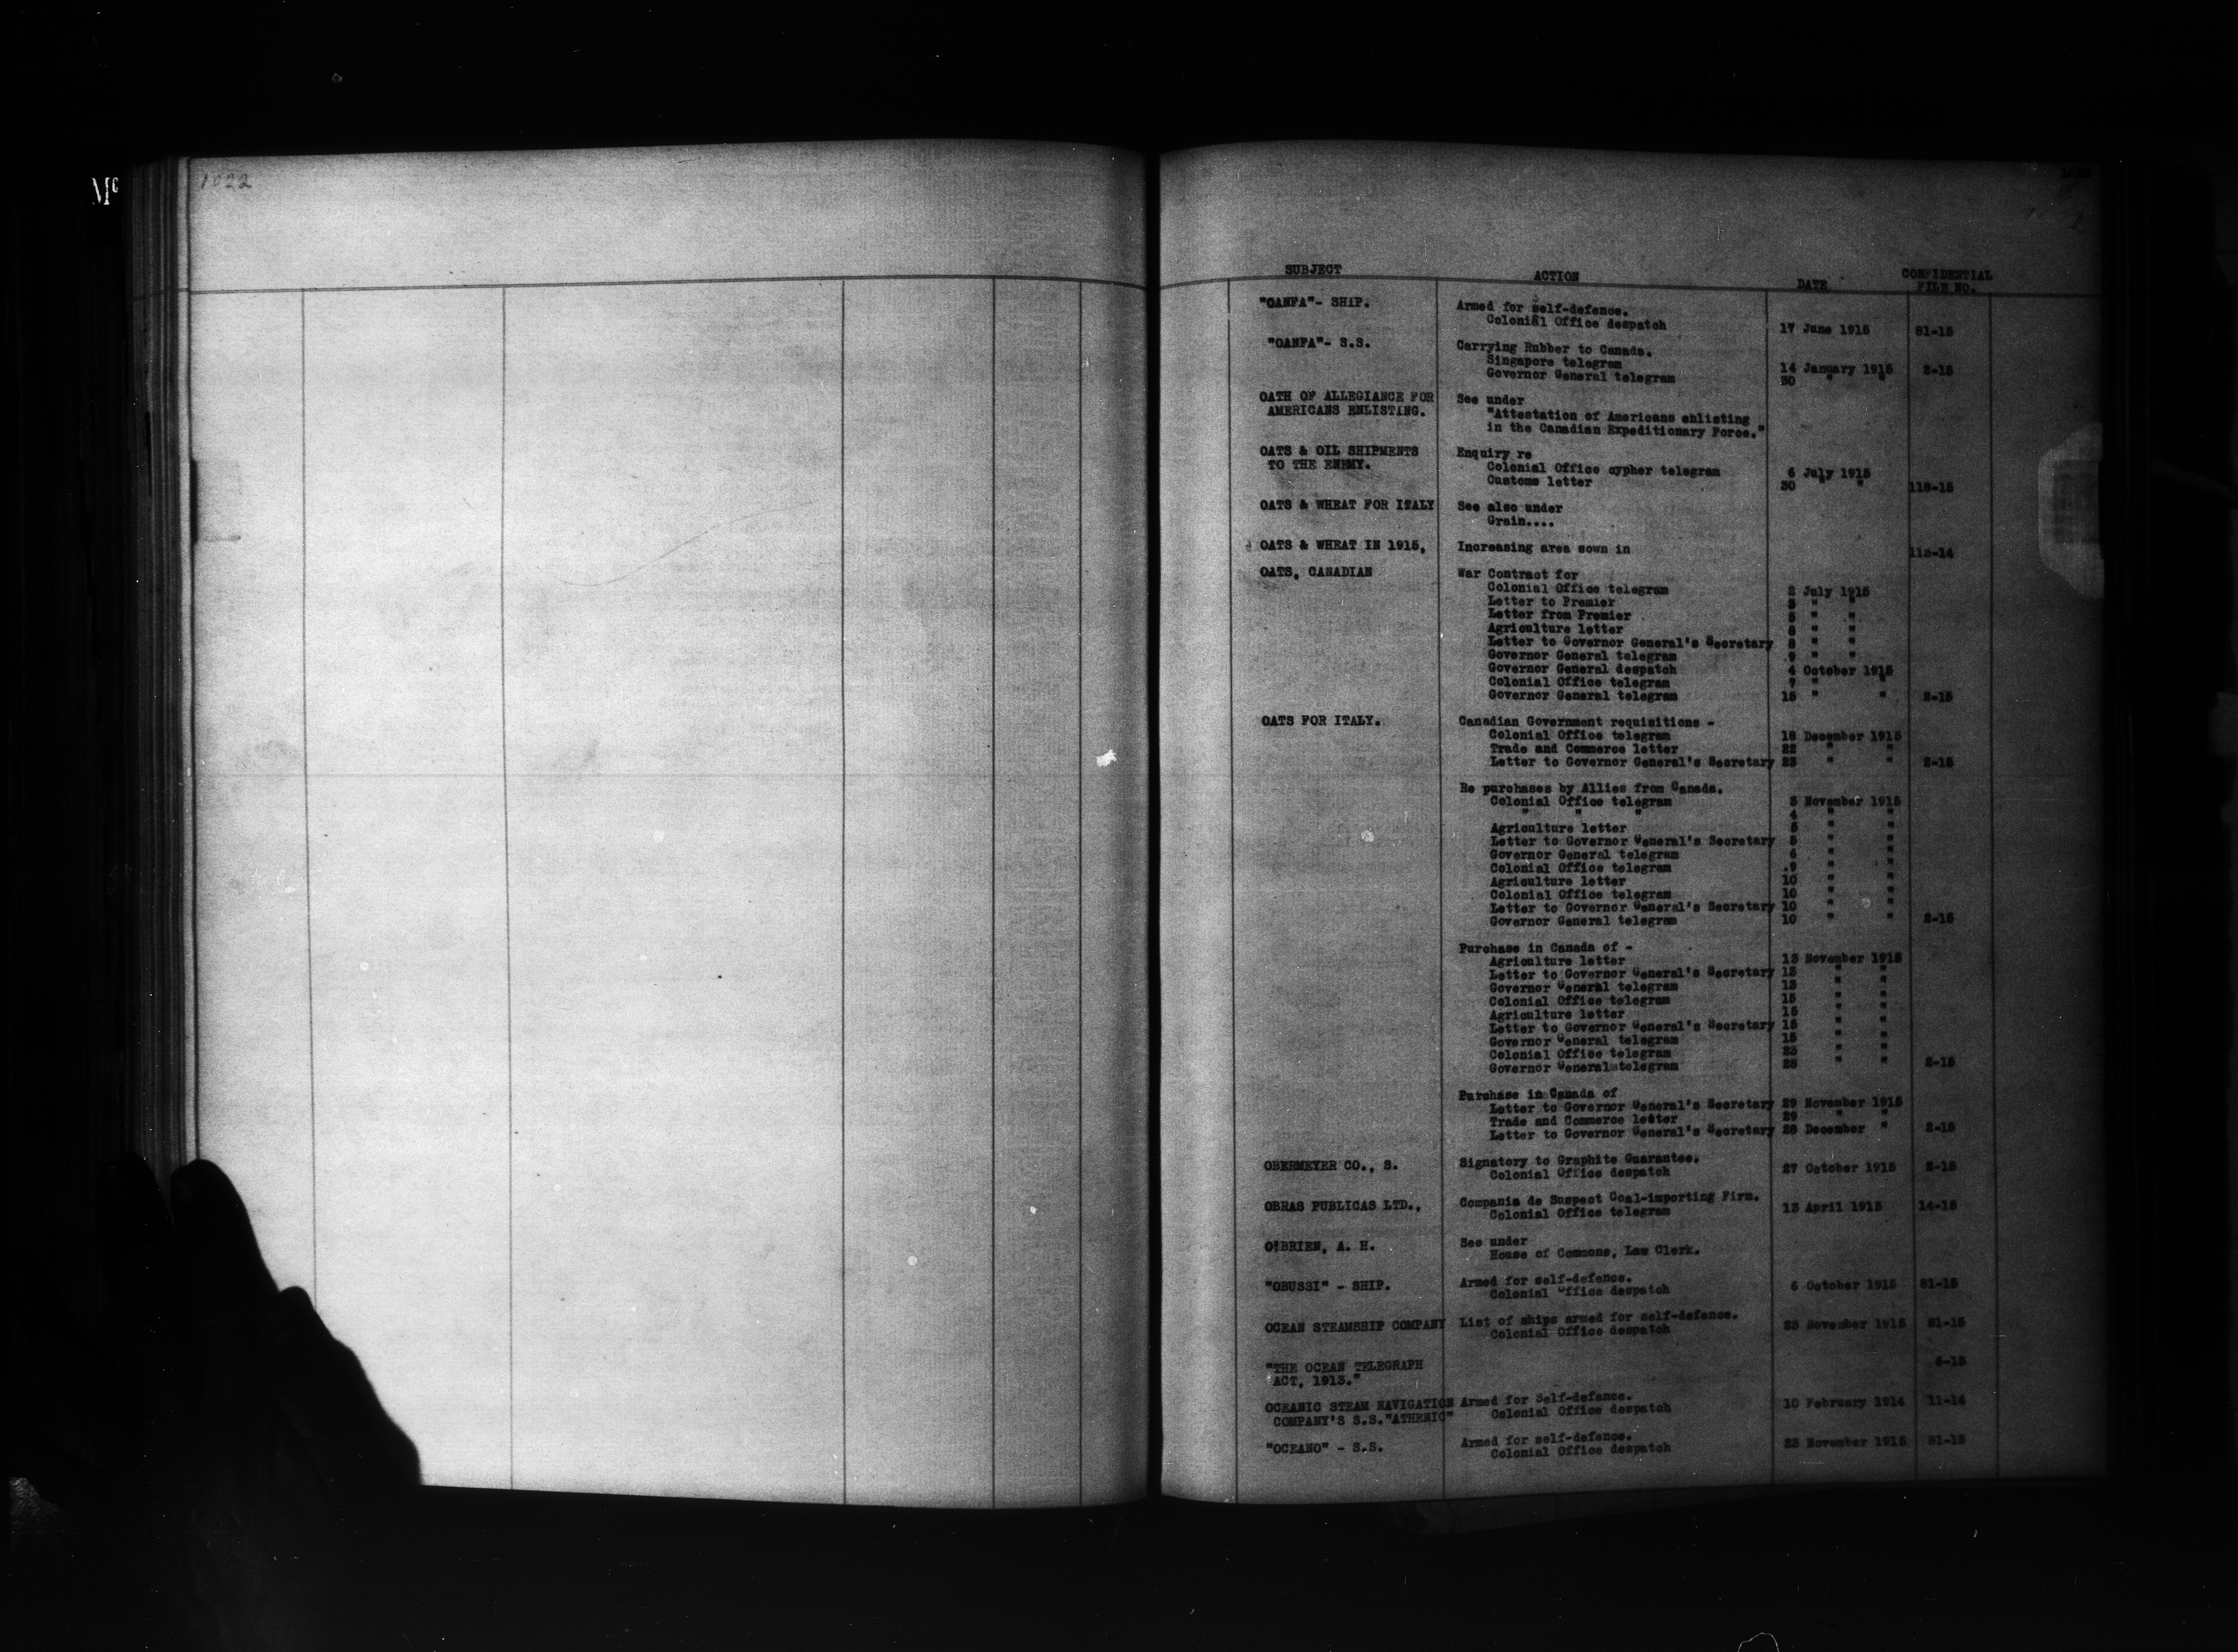 Mc
1022
SUBJECT ACTION DATE CONFIDENTIAL FILE NO.
"OANFA"- SHIP. Armed for self-defence.
Colonial Office despatch 17 June 1915 81-15
"OANFA"- S.S. Carrying Rubber to Canada.
Singapore telegram 14 January 1915 2-15
Governor General telegram 30 " "
OATH OF ALLEGIANCE FOR See under
AMERICANS ENLISTING. "Attestation of Americans enlisting
in the Canadian Expeditionary Force."
OATS & OIL SHIPMENTS Enquiry re
TO THE ENEMY. Colonial Office cypher telegram 6 July 1915
Customs letter 30 " " 118-15
OATS & WHEAT FOR ITALY See also under
Grain....
OATS & WHEAT IN 1915, Increasing area sown in 113-14
OATS, CANADIAN War Contract for
Colonial Office telegram 2 July 1915
Letter to Premier " "
Letter from Premier " "
Agriculture letter " "
Letter to Governor General's Secretary " "
Governor General telegram 9 " "
Governor General despatch 4 October 1915
Colonial Office telegram 7 " "
Governor General telegram 15 " " 2-15
OATS FOR ITALY. Canadian Government requisitions -
Colonial Office telegram 18 December 1915
Trade and Commerce letter 22 " "
Letter to Governor General's Secretary 23 " " 2-15
Re purchases by Allies from Canada.
Colonial Office telegram 3 November 1915
" " " 4 " "
Agriculture letter 5 " "
Letter to Governor General's Secretary 5 " "
Governor General telegram 6 " "
Colonial Office telegram 9 " "
Agriculture letter 10 " "
Colonial Office telegram 10 " "
Letter to Governor General's Secretary 10 " "
Governor General telegram 10 " " 2-15
Purchase in Canada of -
Agriculture letter 13 November 1915
Letter to Governor General's Secretary 13 " "
Governor General telegram 13 " "
Colonial Office telegram 15 " "
Agriculture letter 15 " "
Letter to Governor General's Secretary 15 " "
Governor General telegram 15 " "
Colonial Office telegram " "
Governor General telegram " " 2-15
Purchase in Canada of
Letter to Governor General's Secretary 29 November 1915
Trade and Commerce letter 29 " "
Letter to Governor General's Secretary 28 December " 2-15
OBERMEYER CO., S. Signatory to Graphite Guarantee.
Colonial Office despatch 27 October 1915 2-15
OBRAS PUBLICAS LTD., Compania de Suspect Coal-importing Firm.
Colonial Office telegram 13 April 1915 14-15
O'BRIEN, A. H. See under
House of Commons, Law Clerk.
"OBUSSI" - SHIP. Armed for self-defence.
Colonial Office despatch 6 October 1915 81-15
OCEAN STEAMSHIP COMPANY List of ships armed for self-defence.
Colonial Office despatch 23 November 1915 81-15
"THE OCEAN TELEGRAPH
ACT, 1913."
OCEANIC STEAM NAVIGATION Armed for Self-defence.
COMPANY'S S.S."ATHENIC" Colonial Office despatch 10 February 1914 11-14
"OCEANO" - S.S. Armed for self-defence.
Colonial Office despatch 23 November 1915 81-15